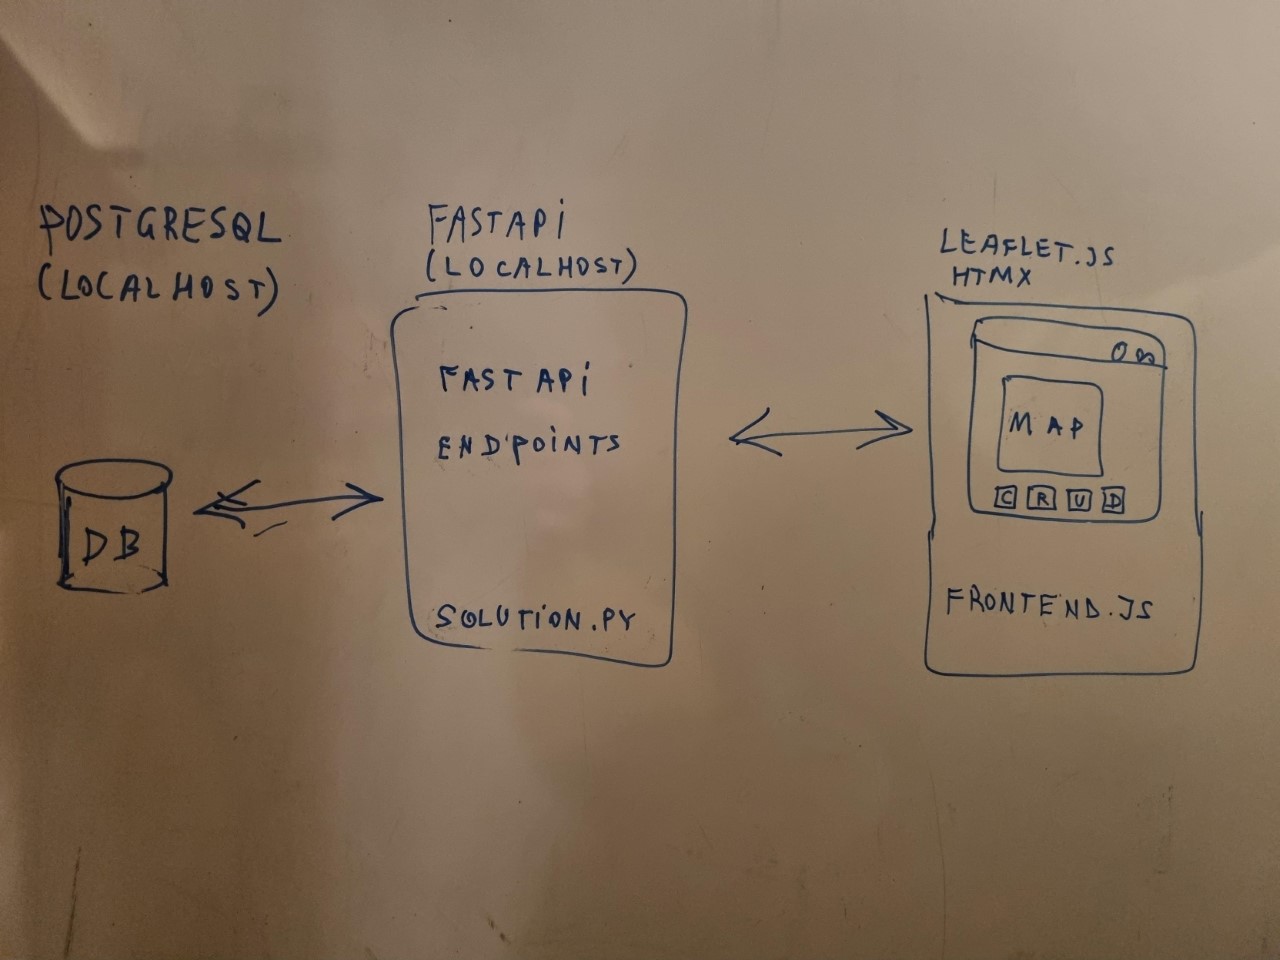 POSTGRESQL
(LOCALHOST)
DB
FASTAPi
(LOCALHOST)
FAST APi
ENDPOiNTS
SOLUTiON.PY
LEAFLET.JS
HTMX
MAP
C R U D
FRONTEND.JS